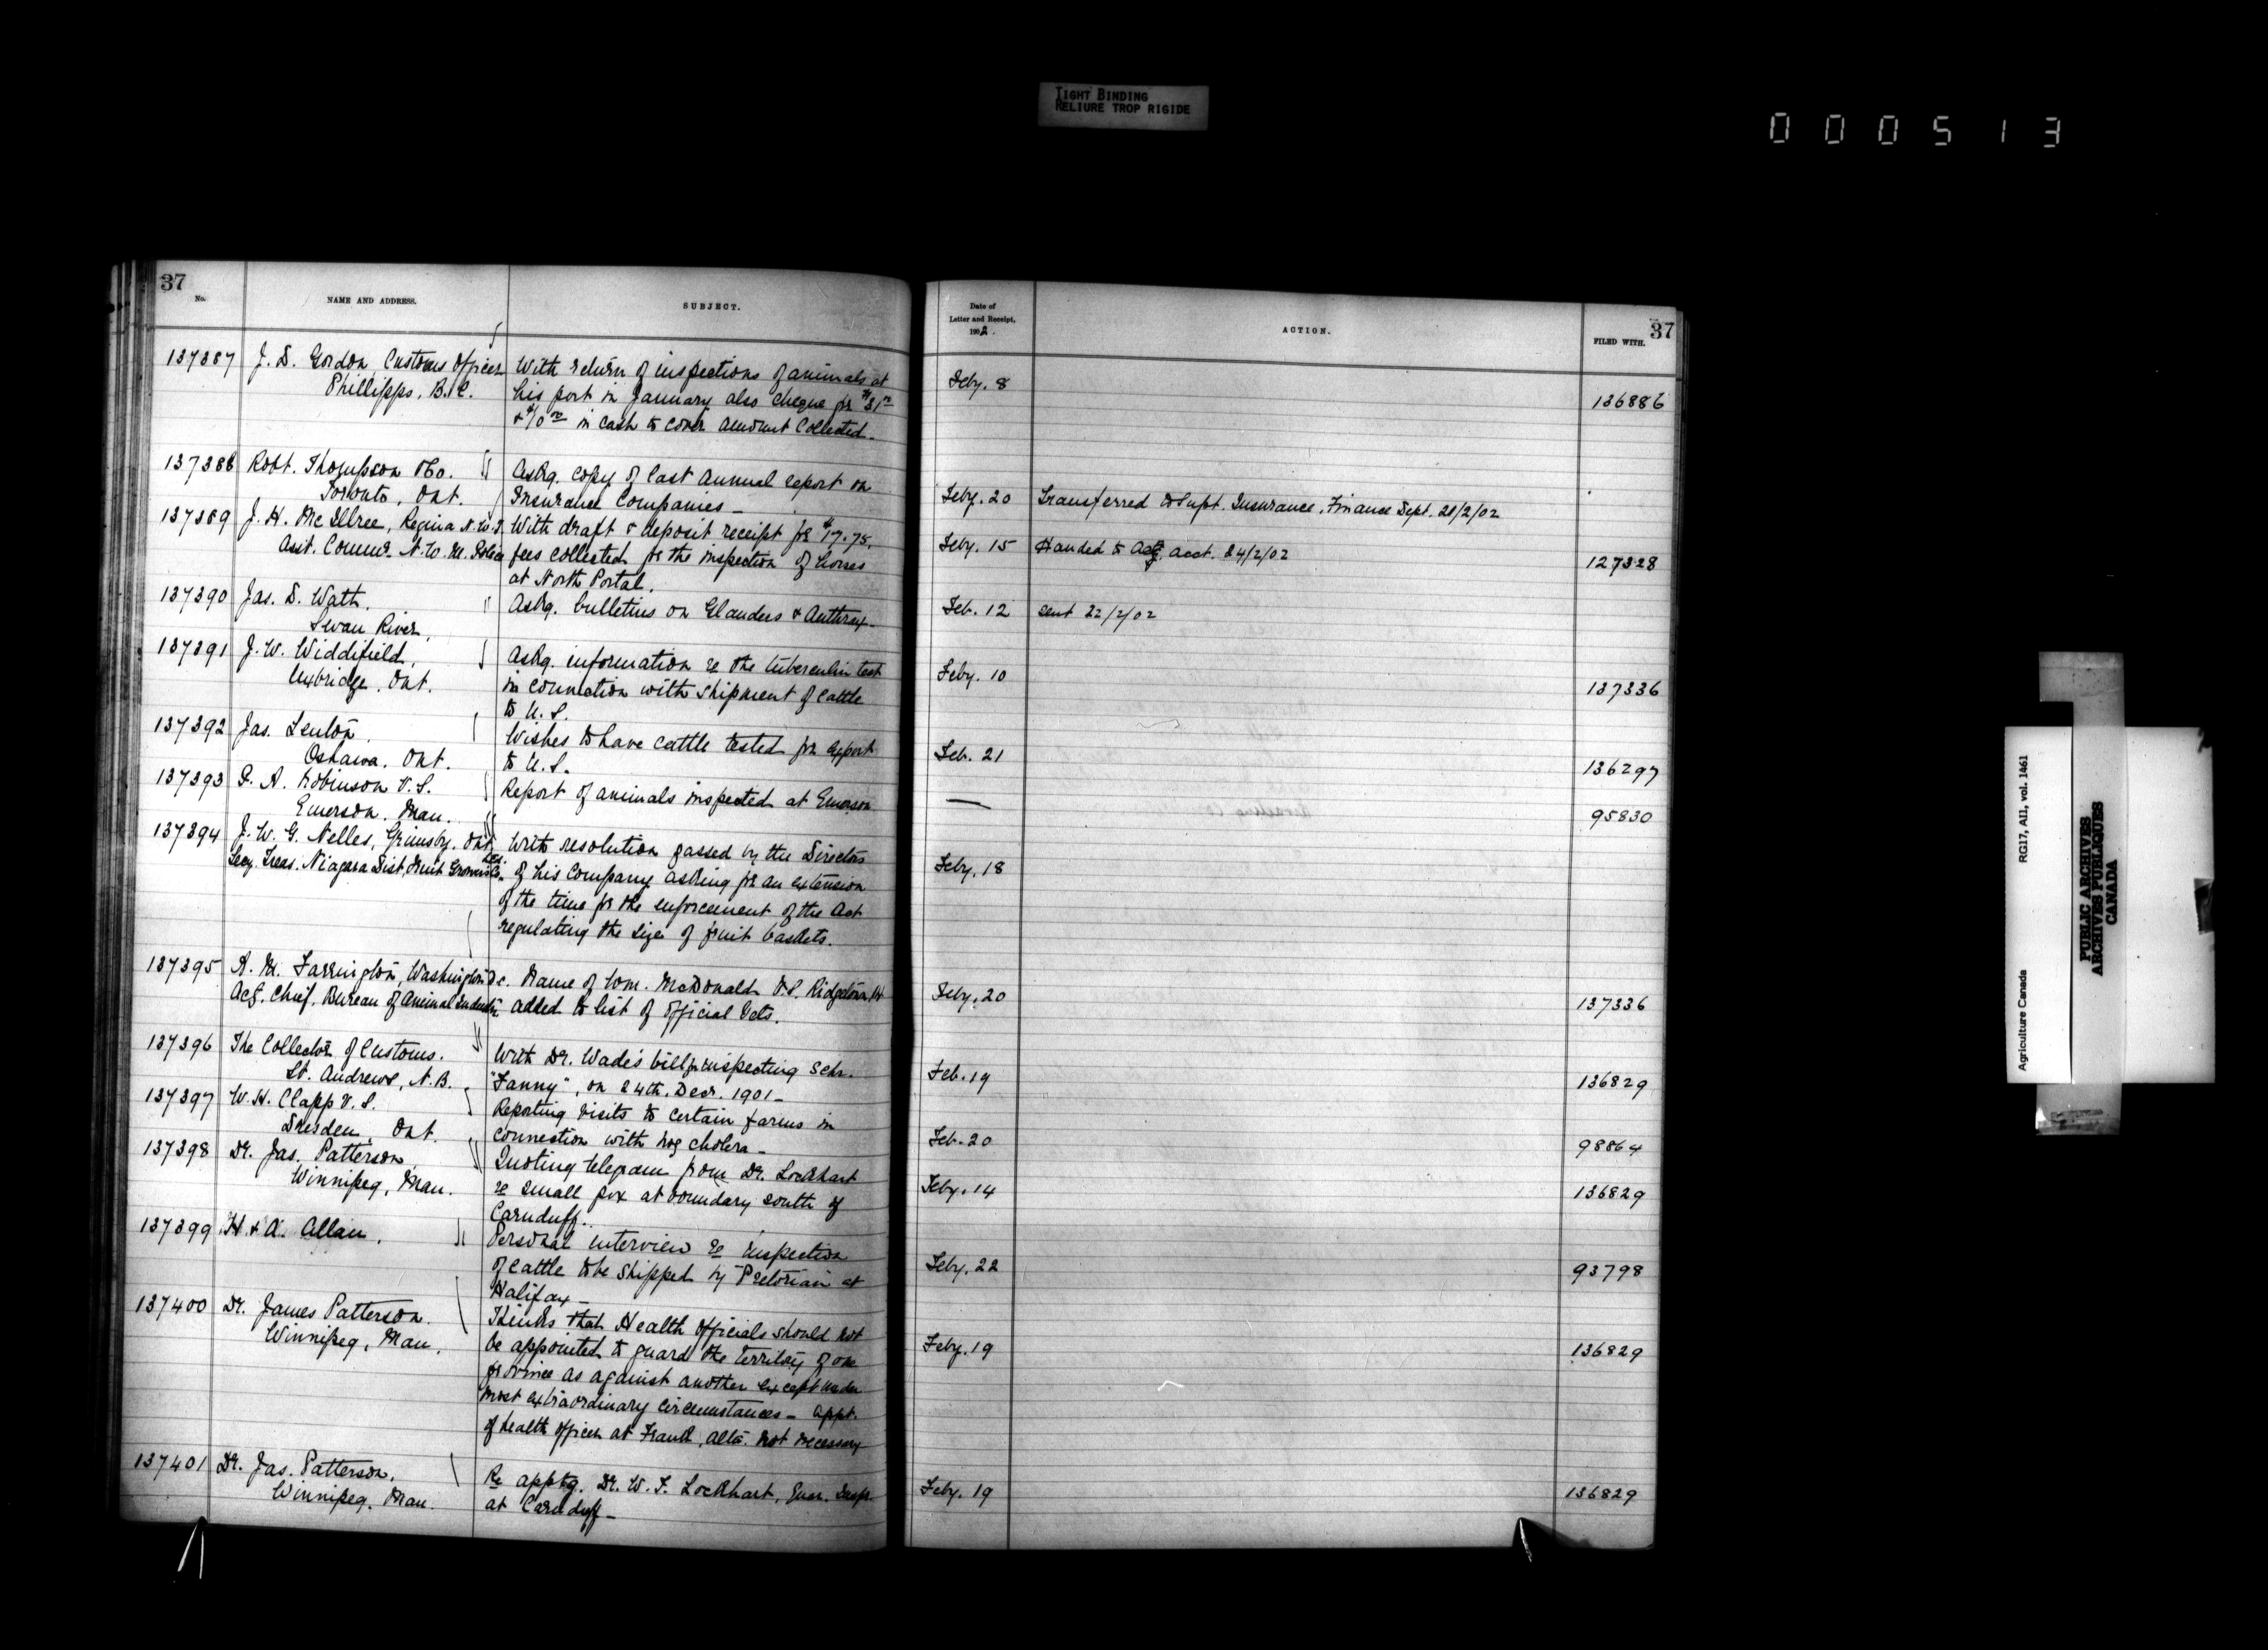 TIGHT BINDING
RELIURE TROP RIGIDE
000513
37
No. NAME AND ADDRESS. SUBJECT.
137387 J. D. Gordon, Customs Officer With return of inspections of animals at
Phillipps, B.C. his port in January also cheque for $31.00
+ $10.00 in cash to cover amount collected.
137388 Robt. Thompson & Co. Askg. copy of last annual report on
Toronto, Ont. Insurance Companies –
137389 J. H. McIllree, Regina N.W.T. With draft & deposit receipt for $17.75,
Asst. Commr. N.W.M. Police fees collected for the inspection of horses
at North Portal.
137390 Jas. D. Watt. Askg. bulletins on Glanders & Anthrax –
Swan River,
137391 J. W. Widdifield, Askg. information re the tuberculin test
Uxbridge, Ont. in connection with shipment of cattle
to U.S.
137392 Jas. Lenton. Wishes to have cattle tested for export
Oshawa, Ont. to U.S.
137393 A. Robinson V.S. Report of animals inspected at Emerson
Emerson, Man.
137394 J. W. G. Nelles, Grimsby, Ont. With resolution passed by the Directors
Secy. Treas. Niagara Dist. Fruit Growers Co. of his Company asking for an extension
of the time for the enforcement of the Act
regulating the size of fruit baskets.
137395 A. M. Farrington, Washington D.C. Name of Wm. McDonald V.S. Ridgetown
Actg. Chief, Bureau of Animal Industry added to list of official Vets.
137396 The Collector of Customs. With Dr. Wade's bill for inspecting Schr.
St. Andrews, N.B. "Fanny", on 24th. Decr. 1901 –
137397 W. H. Clapp V.S. Reporting visits to certain farms in
Dresden, Ont. connection with hog cholera –
137398 Dr. Jas. Patterson, Quoting telegram from Dr. Lockhart
Winnipeg, Man. re small pox at boundary south of
Carnduff.
137399 H. & A. Allan. Personal interview re inspection
of cattle to be shipped by "Pretorian" at
Halifax –
137400 Dr. James Patterson. Thinks that Health Officials should not
Winnipeg, Man. be appointed to guard the territory of one
province as against another except under
most extraordinary circumstances – Appt.
of health officer at Frank, Alta. not necessary
137401 Dr. Jas. Patterson, Re apptg. Dr. W. F. Lockhart, Quar. Inspr.
Winnipeg, Man. at Carnduff –
37
Date of Letter and Receipt, 1902. ACTION. FILED WITH.
Feby. 8 136886
Feby. 20 Transferred to Supt. Insurance, Finance Dept. 21/2/02
Feby. 15 Handed to Actg. Acct. 24/2/02 127328
Feb. 12 sent 22/2/02
Feby. 10 137336
Feb. 21 136297
— 95830
Feby. 18
Feby. 20 137336
Feb. 19 136829
Feb. 20 98864
Feby. 14 136829
Feby. 22 93798
Feby. 19 136829
Feby. 19 136829
Agriculture Canada RG17, AII, vol. 1461
PUBLIC ARCHIVES
ARCHIVES PUBLIQUES
CANADA